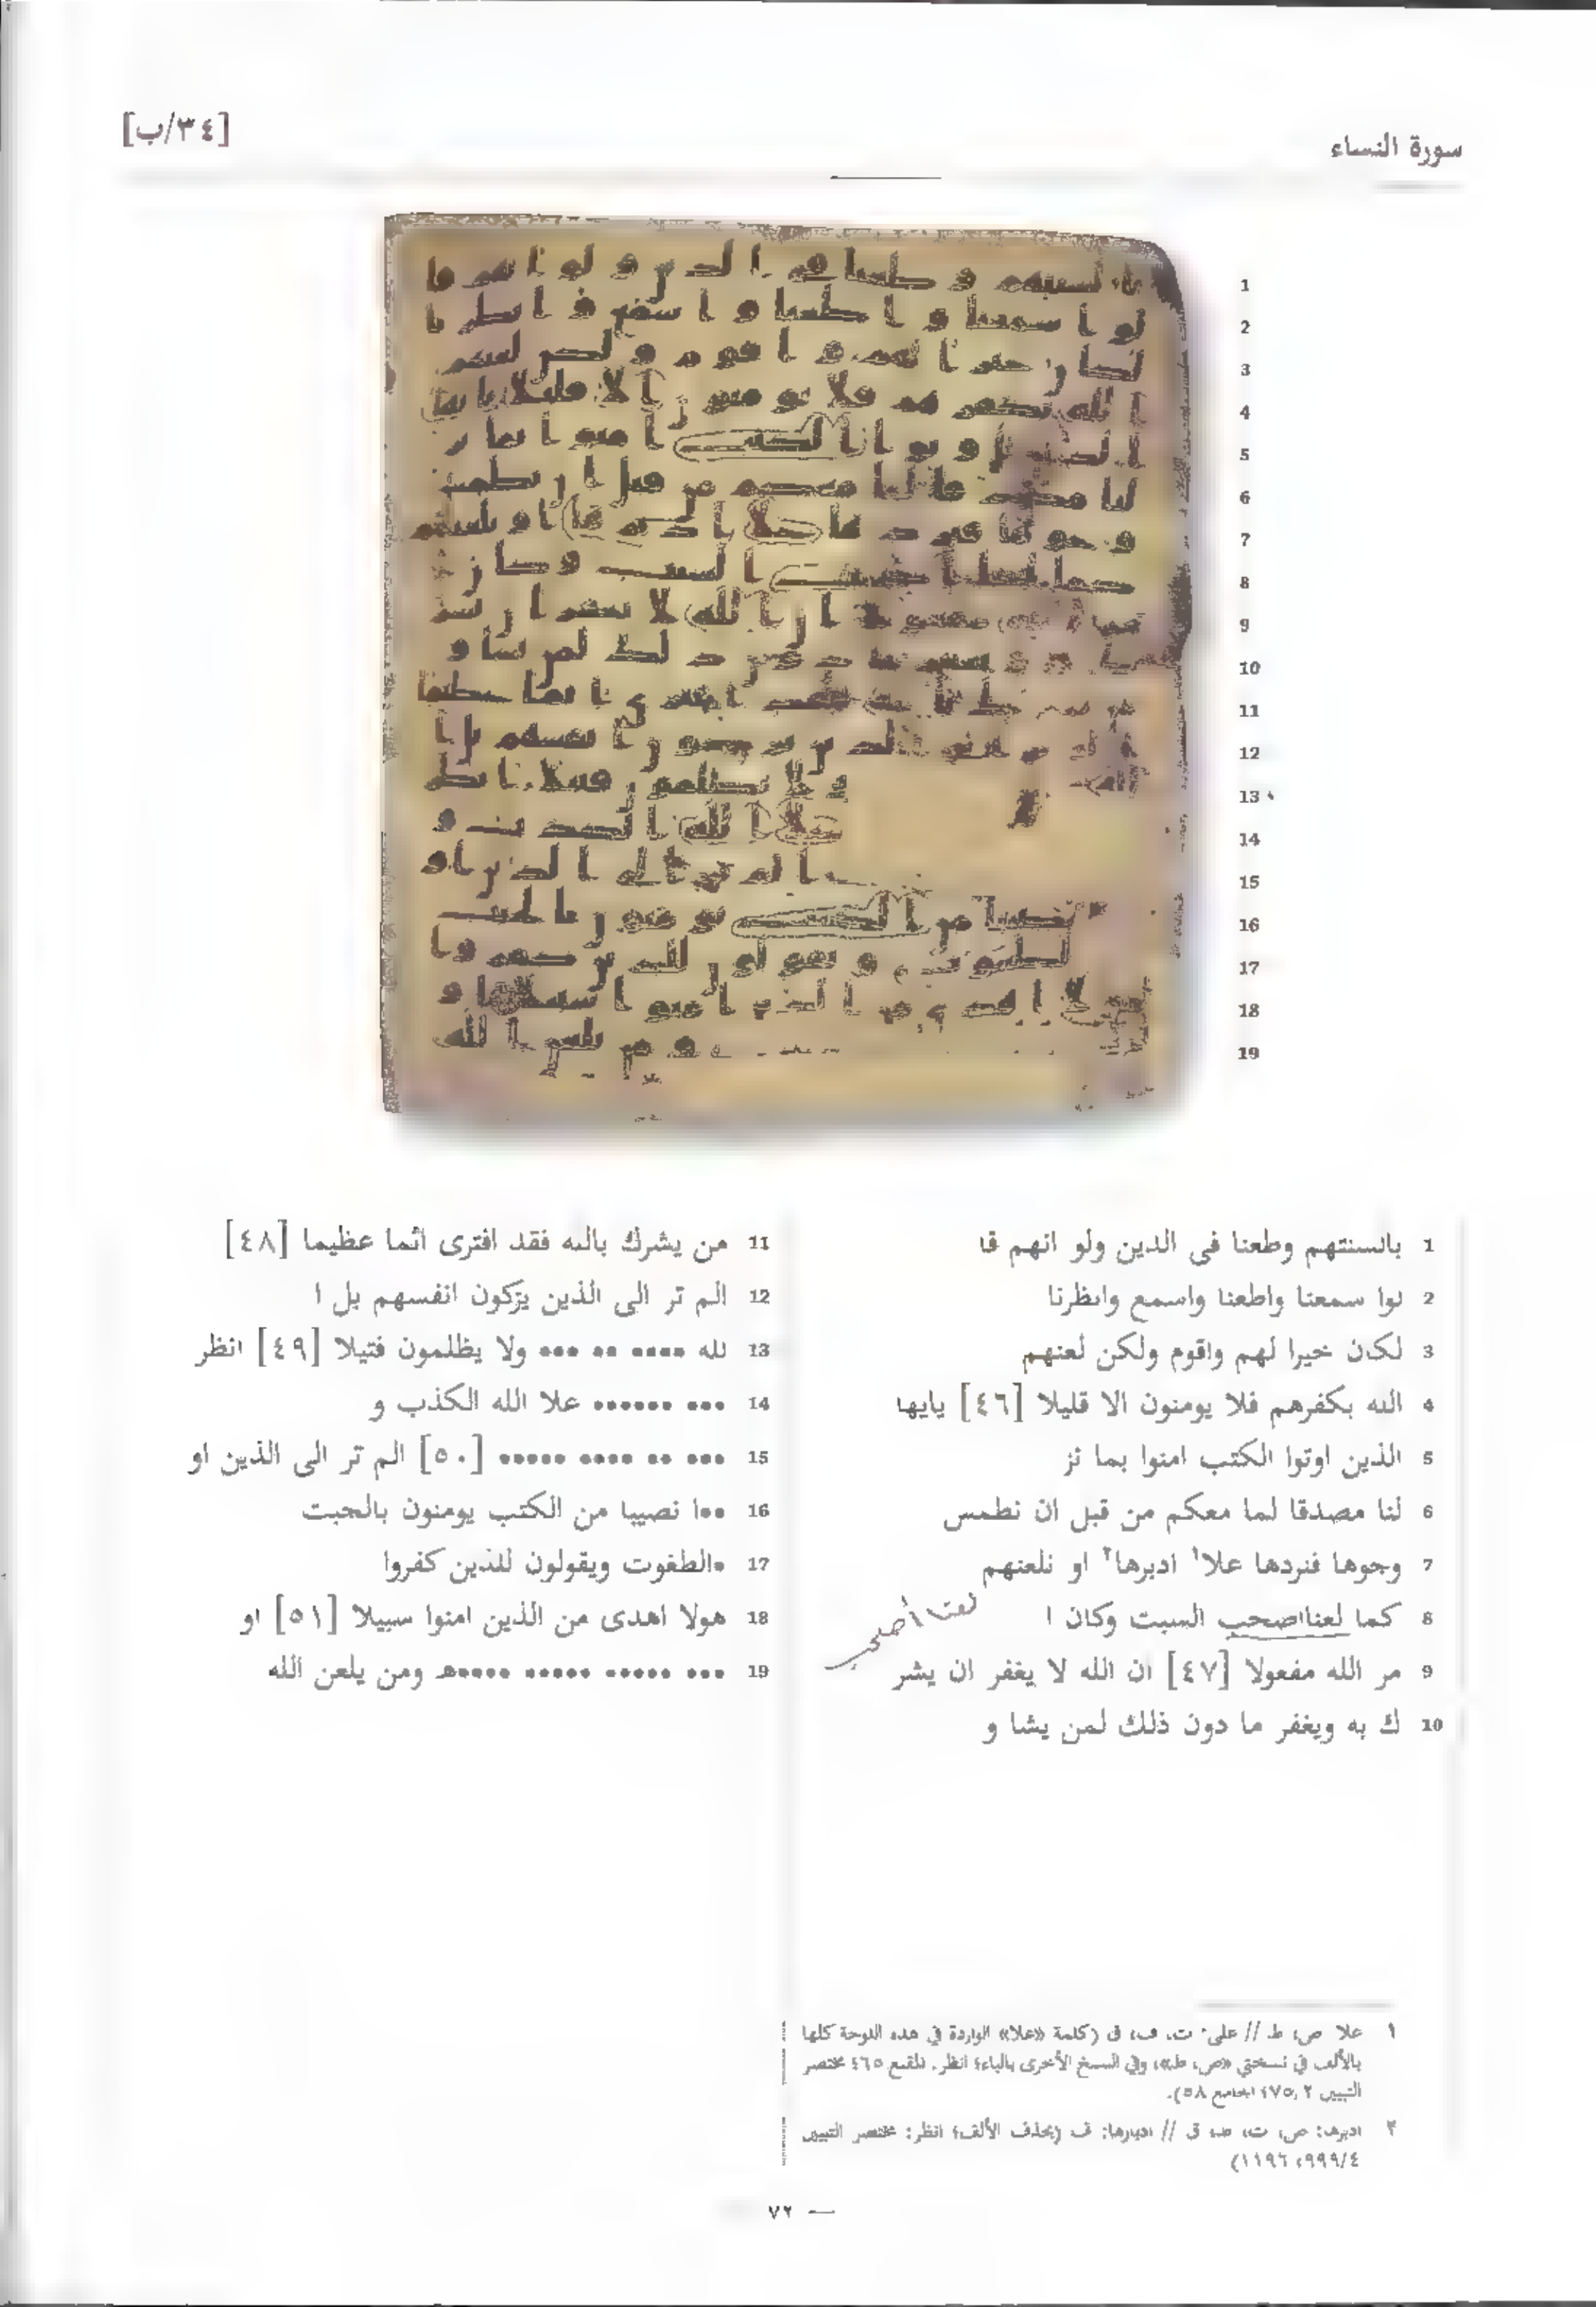 [٣٤/ب]
سورة النساء
1 بالسنتهم وطعنا فى الدين ولو انهم قا
2 لوا سمعنا واطعنا واسمع وانظرنا
3 لكان خيرا لهم واقوم ولكن لعنهم
4 الله بكفرهم فلا يومنون الا قليلا [٤٦] يايها
5 الذين اوتوا الكتب امنوا بما نز
6 لنا مصدقا لما معكم من قبل ان نطمس
7 وجوها فنردها علا١ ادبرها٢ او نلعنهم
8 كما لعنااصحب السبت وكان ا
لعنا أصحب
9 مر الله مفعولا [٤٧] ان الله لا يغفر ان يشر
10 ك به ويغفر ما دون ذلك لمن يشا و
11 من يشرك بالله فقد افترى اثما عظيما [٤٨]
12 الم تر الى الذين يزكون انفسهم بل ا
13 لله •••• •• ••• ولا يظلمون فتيلا [٤٩] انظر
14 ••• •••••• علا الله الكذب و
15 ••• •• •••• ••••• [٥٠] الم تر الى الذين او
16 ••ا نصيبا من الكتب يومنون بالجبت
17 •الطغوت ويقولون للذين كفروا
18 هولا اهدى من الذين امنوا سبيلا [٥١] او
19 ••• ••••• ••••• •••••هـ ومن يلعن الله
١ علا: ص، ط // على: ت، ف، ق (كلمة «علا» الواردة في هذه اللوحة كلها
بالألف في نسختي «ص، ط»، وفي النسخ الأخرى بالياء؛ انظر: المقنع ٤٦٥ مختصر
التبيين ٢/٧٥؛ الجامع ٥٨).
٢ ادبرها: ص، ت، ط، ق // ادبارها: ف (بحذف الألف؛ انظر: مختصر التبيين
٩٩٩/٤، ١١٩٦)
— ٧٢